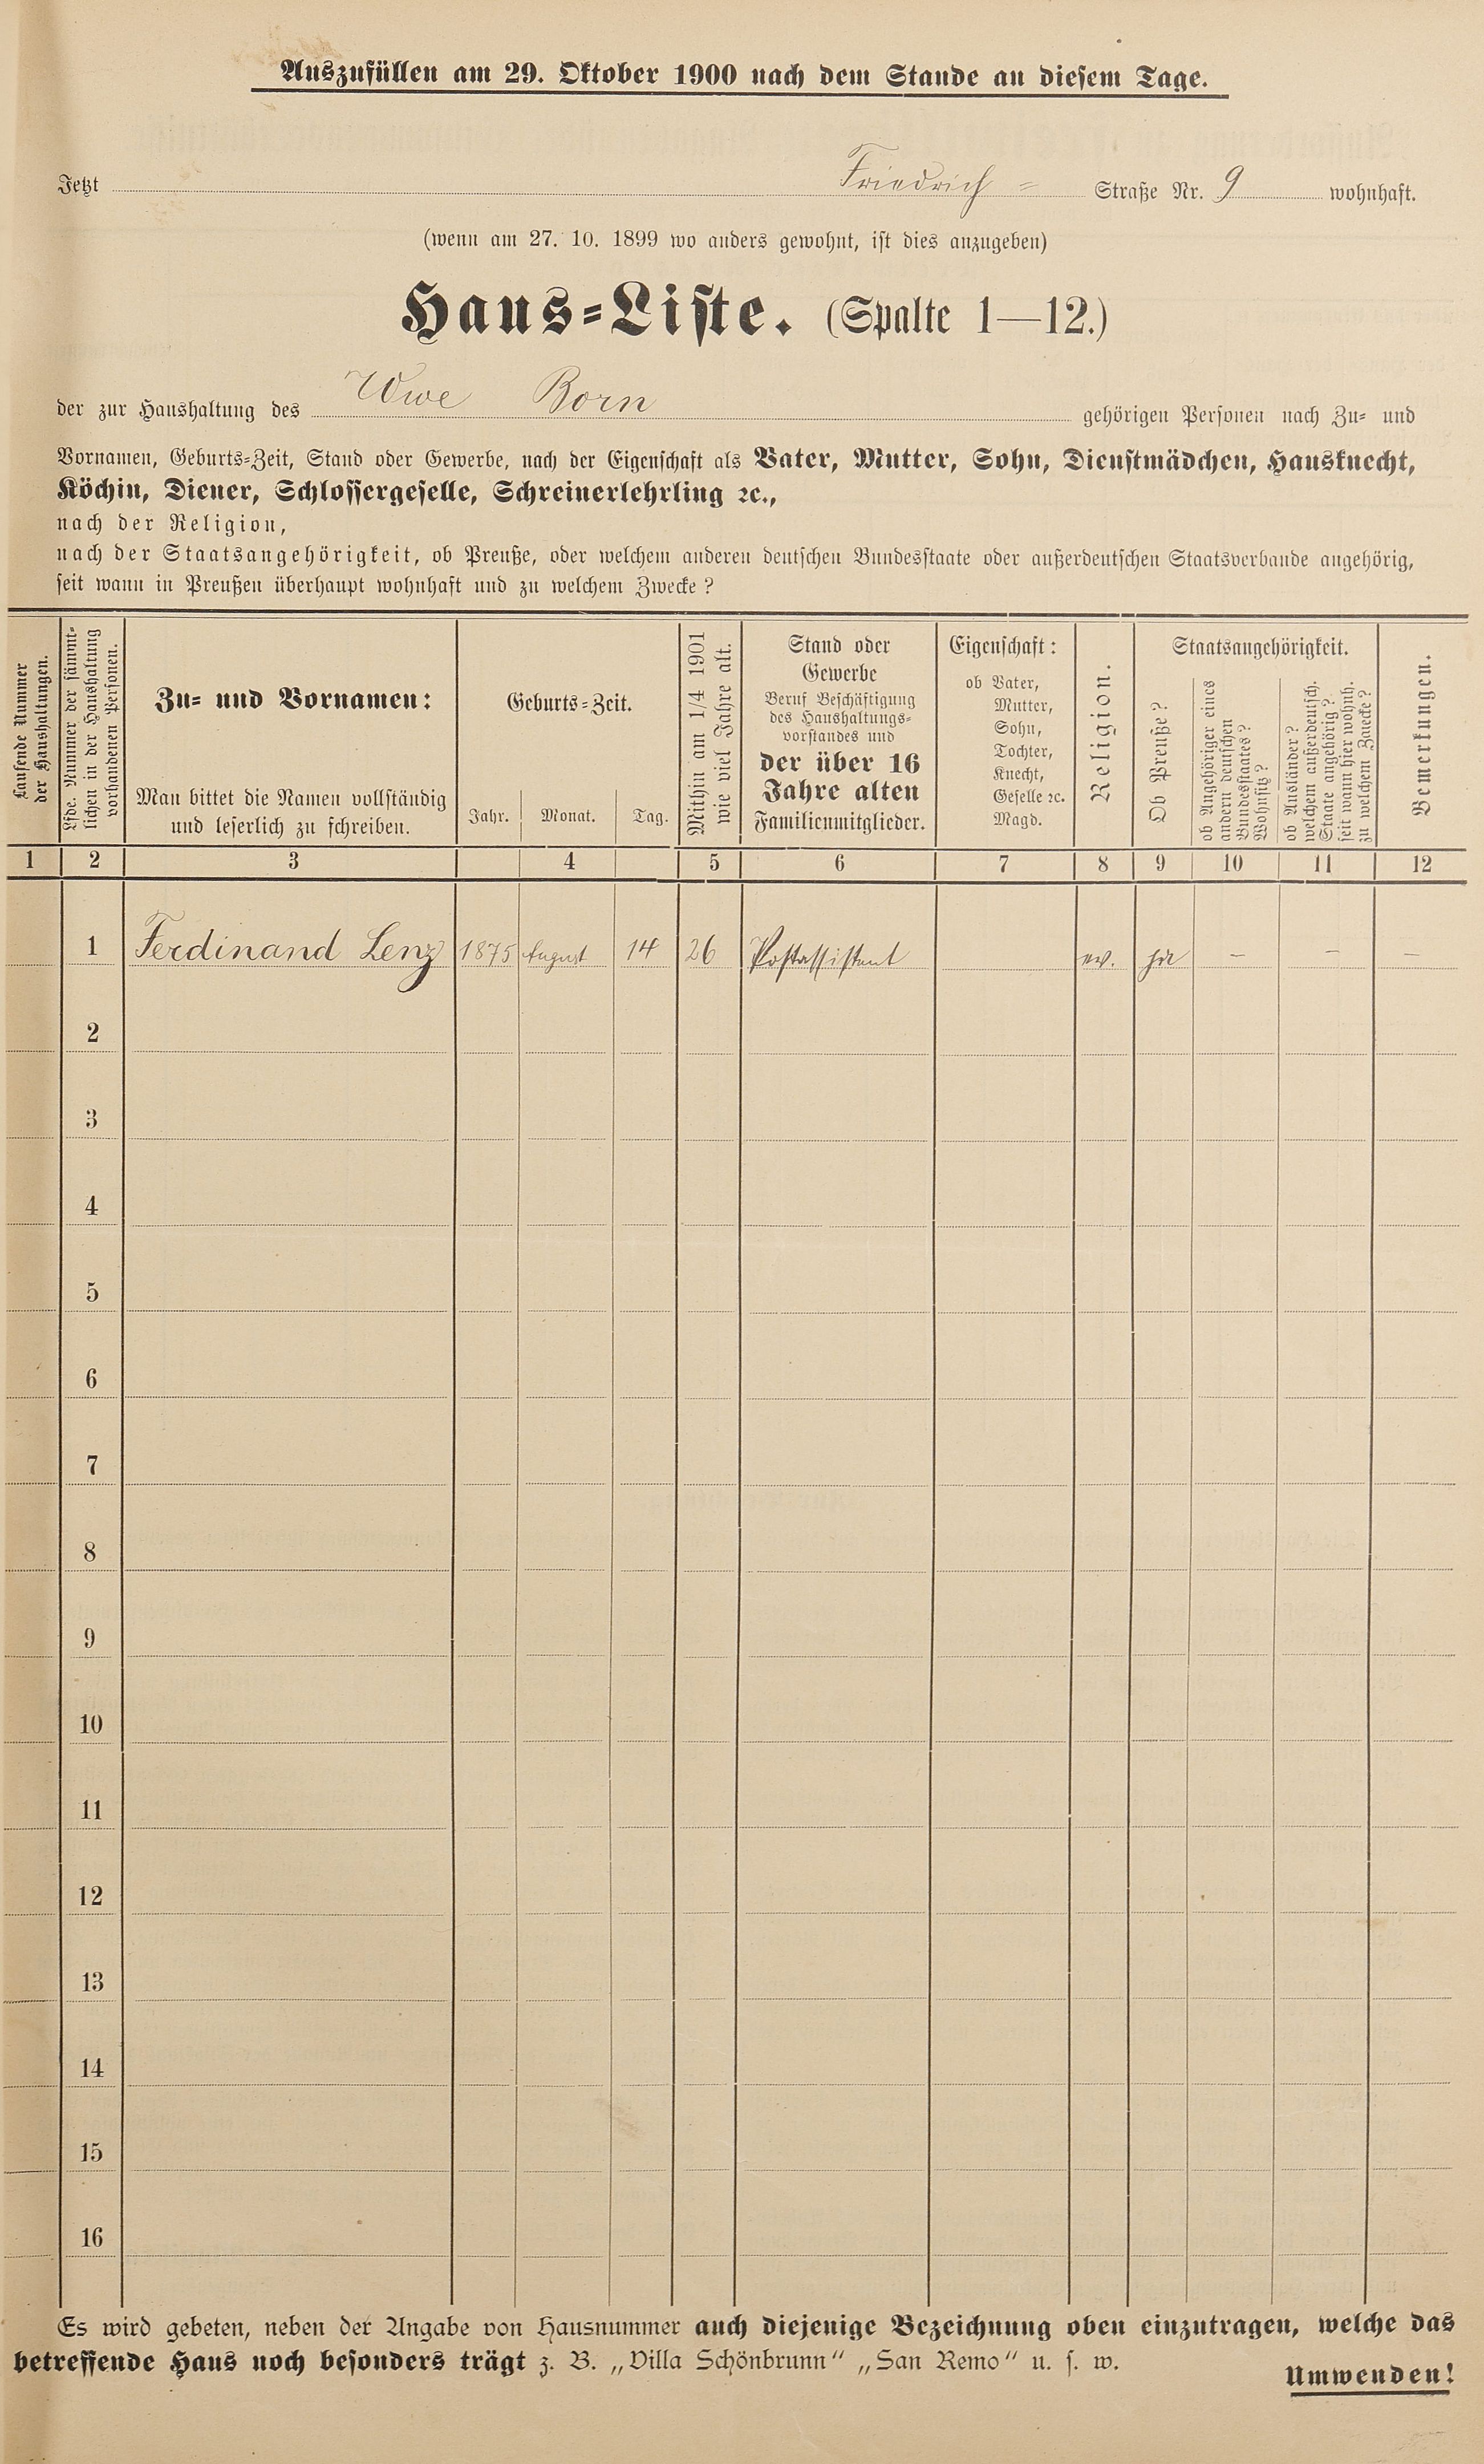 Auszufüllen am 29. Oktober 1900 nach dem Stande an diesem Tage.
Jetzt Friedrich = Straße Nr. 9 wohnhaft.
(wenn am 27. 10. 1899 wo anders gewohnt, ist dies anzugeben)
Haus=Liste. (Spalte 1—12.)
der zur Haushaltung des Wwe Born gehörigen Personen nach Zu= und
Vornamen, Geburts=Zeit, Stand oder Gewerbe, nach der Eigenschaft als Vater, Mutter, Sohn, Dienstmädchen, Hausknecht,
Köchin, Diener, Schlossergeselle, Schreinerlehrling ꝛc.,
nach der Religion,
nach der Staatsangehörigkeit, ob Preuße, oder welchem anderen deutschen Bundesstaate oder außerdeutschen Staatsverbande angehörig,
seit wann in Preußen überhaupt wohnhaft und zu welchem Zwecke?
Laufende Nummer
der Haushaltungen.
Lfde. Nummer der sämmt-
lichen in der Haushaltung
vorhandenen Personen.
Zu= und Vornamen:
Man bittet die Namen vollständig
und leserlich zu schreiben.
Geburts=Zeit.
Jahr. Monat. Tag.
Mithin am 1/4 1901
wie viel Jahre alt.
Stand oder
Gewerbe
Beruf Beschäftigung
des Haushaltungs=
vorstandes und
der über 16
Jahre alten
Familienmitglieder.
Eigenschaft:
ob Vater,
Mutter,
Sohn,
Tochter,
Knecht,
Geselle ꝛc.
Magd.
Religion.
Staatsangehörigkeit.
Ob Preuße?
ob Angehöriger eines
andern deutschen
Bundesstaates?
Wohnsitz?
ob Ausländer?
welchem außerdeutsch.
Staate angehörig?
seit wann hier wohnh.
zu welchem Zwecke?
Bemerkungen.
1 2 3 4 5 6 7 8 9 10 11 12
1 Ferdinand Lenz 1875 August 14 26 Postassistent ev. – – –
2
3
4
5
6
7
8
9
10
11
12
13
14
15
16
Es wird gebeten, neben der Angabe von Hausnummer auch diejenige Bezeichnung oben einzutragen, welche das
betreffende Haus noch besonders trägt z. B. „Villa Schönbrunn“ „San Remo“ u. s. w.
Umwenden!